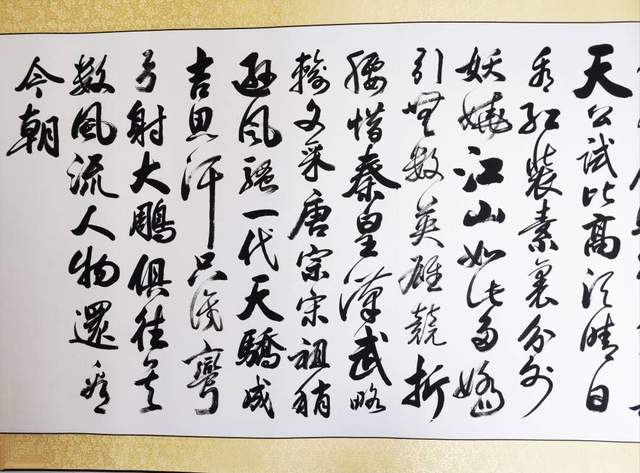 天公試比高須晴日
看紅裝素裹分外
妖嬈江山如此多嬌
引無數英雄競折
腰惜秦皇漢武略
輸文采唐宗宋祖稍
遜風騷一代天驕成
吉思汗只識彎
弓射大鵰俱往矣
數風流人物還看
今朝